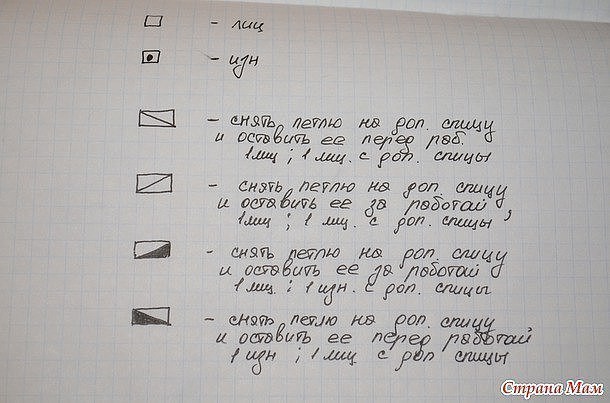 - лиц
- изн
- снять петлю на доп. спицу
и оставить ее перед раб.
1 лиц ; 1 лиц. с доп. спицы
- снять петлю на доп. спицу
и оставить ее за работай,
1 лиц ; 1 лиц. с доп. спицы
- снять петлю на доп. спицу
и оставить ее за работай
1 лиц. ; 1 изн. с доп. спицы
- снять петлю на доп. спицу
и оставить ее перед работай
1 изн ; 1 лиц с доп спицы
Страна Мам